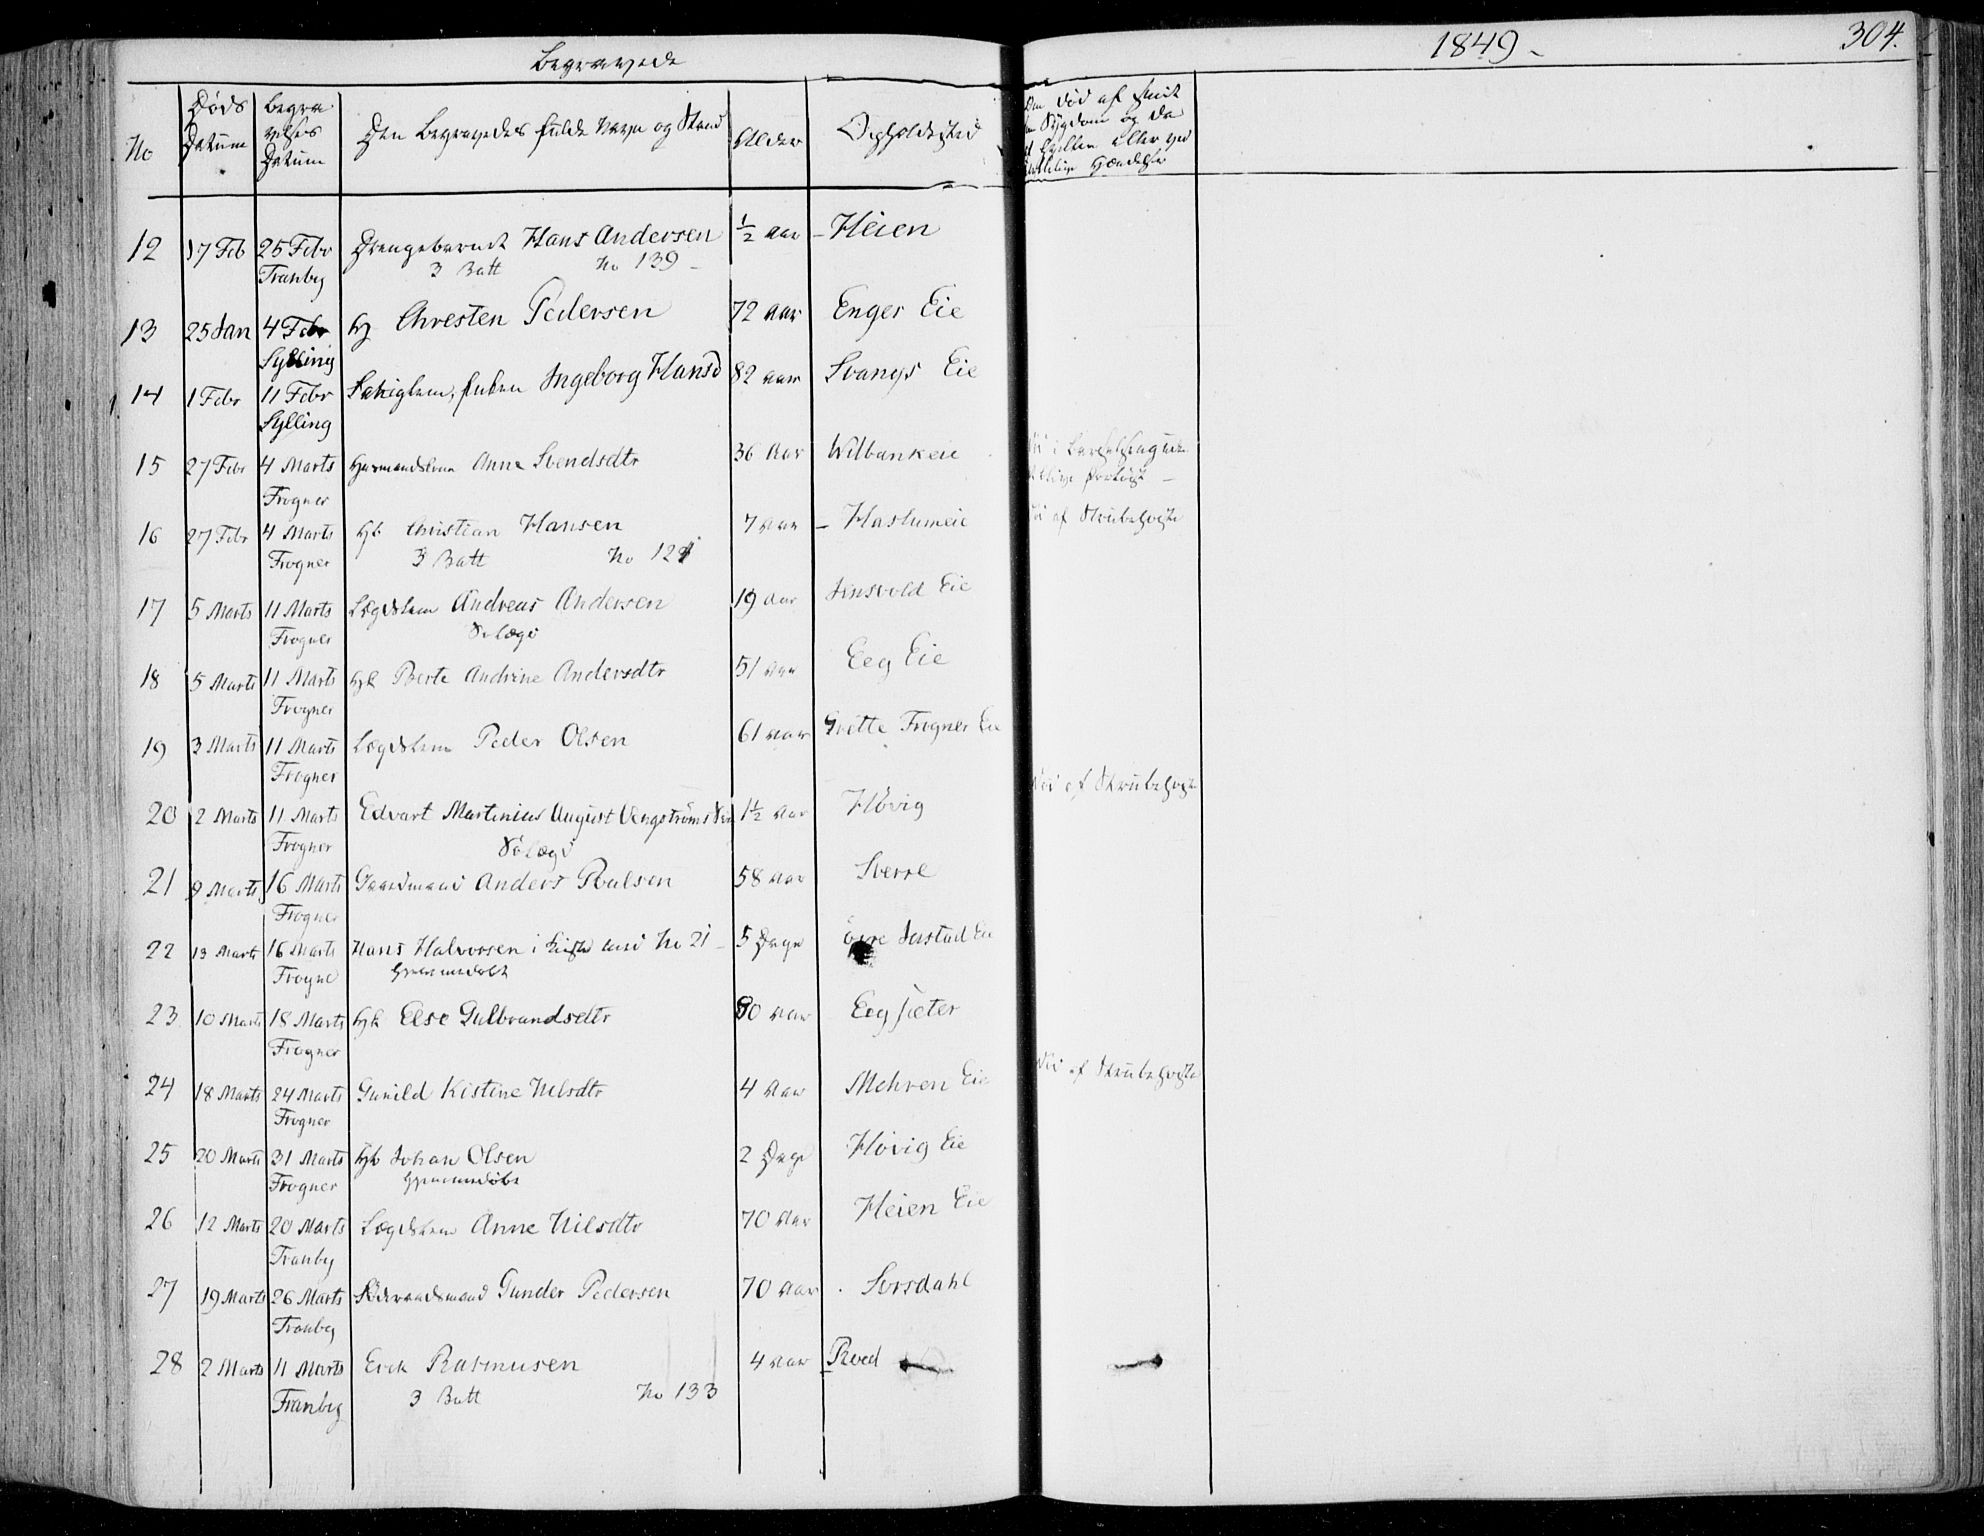 Begravede
1849 -
304.
No
Døds Datum
Begravelses Datum
Den Begravedes fulde Navn og Stand
Alder
Opholdssted
12 17 Feb 25 Febr Drengebarnet Hans Andersen ½ aar - Heien
Tranby 3 Batt No 139 -
13 25 Jan 4 Febr Chresten Pedersen 72 aar Enger Eie
Sylling
14 1 Febr 11 Febr Enken Ingeborg Hansd 82 aar Svangs Eie
Sylling
15 27 Febr 4 Marts Huusmandskone Anne Svendsdtr 36 Aar Wilbankeie
Frogner
16 27 Febr 4 Marts Christian Hansen 7 aar - Haslumeie af Strubehoste
Frogner 3 Batt No 121
17 5 Marts 11 Marts Lægdslem Andreas Andersen 19 aar Linsvold Eie
Frogner
18 5 Marts 11 Marts Berte Andrine Andersdtr 51 aar Eeg Eie
Frogner
19 3 Marts 11 Marts Lægdslem Peder Olsen 61 aar Frogner Eie
Frogner
20 2 Marts 11 Marts Edvart Martinius August 1½ aar Høvig af Strubehoste
Frogner
21 9 Marts 16 Marts Gaardmand Anders Poulsen 58 aar Sverre
Frogner
22 13 Marts 16 Marts Hans Halvorsen i Kiste med No 21 - 5 Dage øvre Justad Eie
Frogne hjemmedøbt
23 10 Marts 18 Marts Else Gulbrandsdtr 80 aar Eegsæter
Frogner
24 18 Marts 24 Marts Gunild Kistine Nilsdtr 4 aar Mehren Eie af Strubehoste
Frogner
25 20 Marts 31 Marts Johan Olsen 2 Dage Høvig Eie
Frogner hjemmedøbt
26 12 Marts 20 Marts Lægdslem Anne Nilsdtr 70 Aar Heien Eie
Tranby
27 19 Marts 26 Marts Føderaadsmand Gunder Pedersen 70 aar Sørsdahl
Tranby
28 2 Marts 11 Marts Erik Rasmusen 4 aar Roed
Tranby 3 Batt No 133